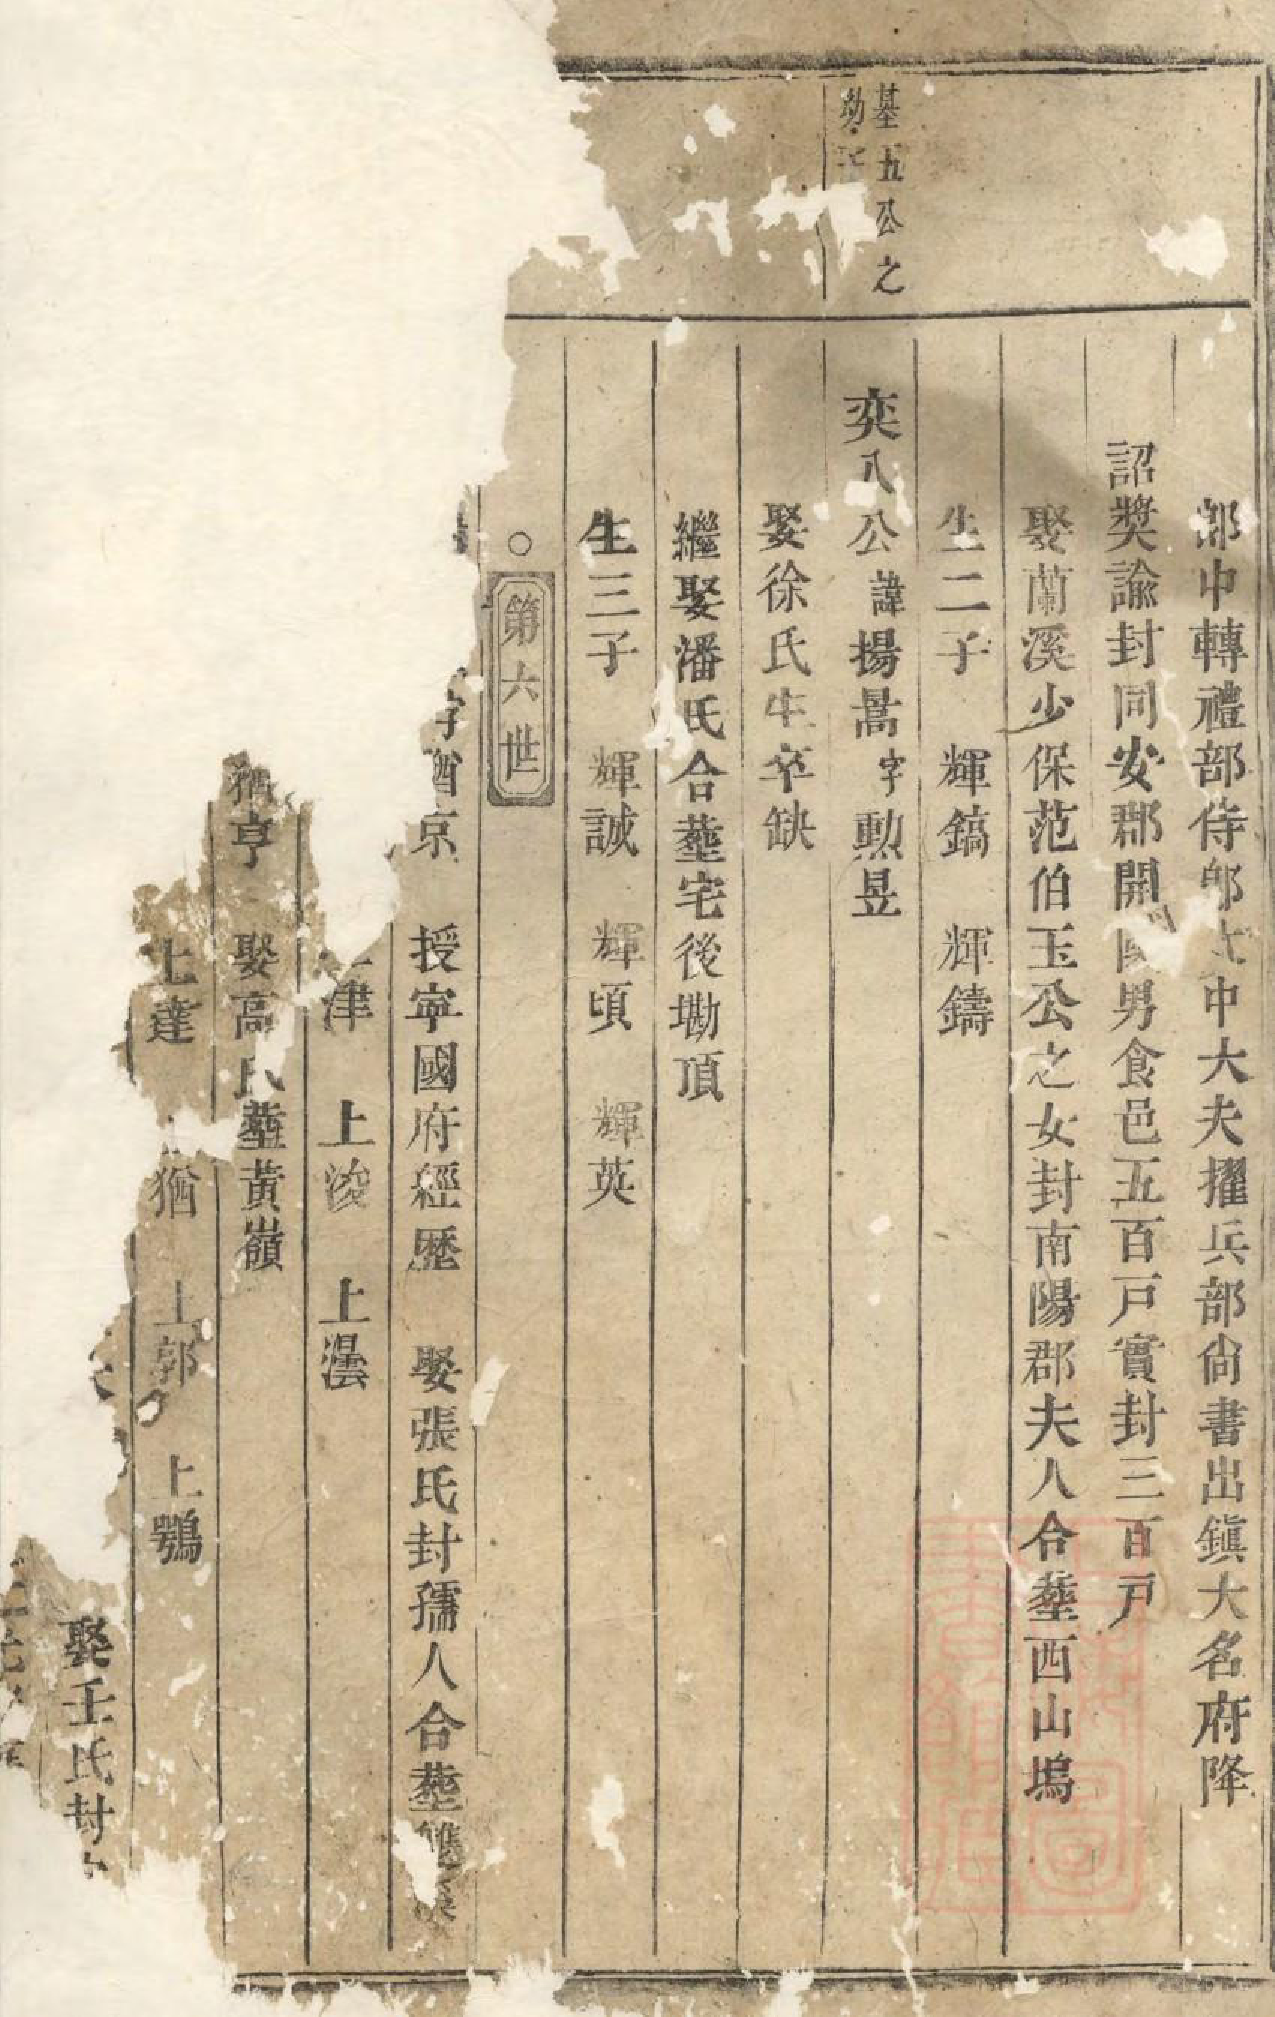 墓五公之
勃
部中轉禮部侍郎太中大夫擢兵部尙書出鎭大名府降
詔獎諭封同安郡開國男食邑五百戸實封三百戸
娶蘭溪少保范伯玉公之女封南陽郡夫人合塟西山塢
生二子 輝鎬 輝鑄
奕八公諱揚暠字勳昱
娶徐氏生卒缺
繼娶潘氏合塟宅後墈頂
生三子 輝誠 輝頃 輝英
○第六世
字酋京 授寧國府經歷 娶張氏封孺人合塟
津 上浚 上澐
猶亨 娶高氏塟黃嶺
上達 猶 上郭 上鶚
娶王氏封